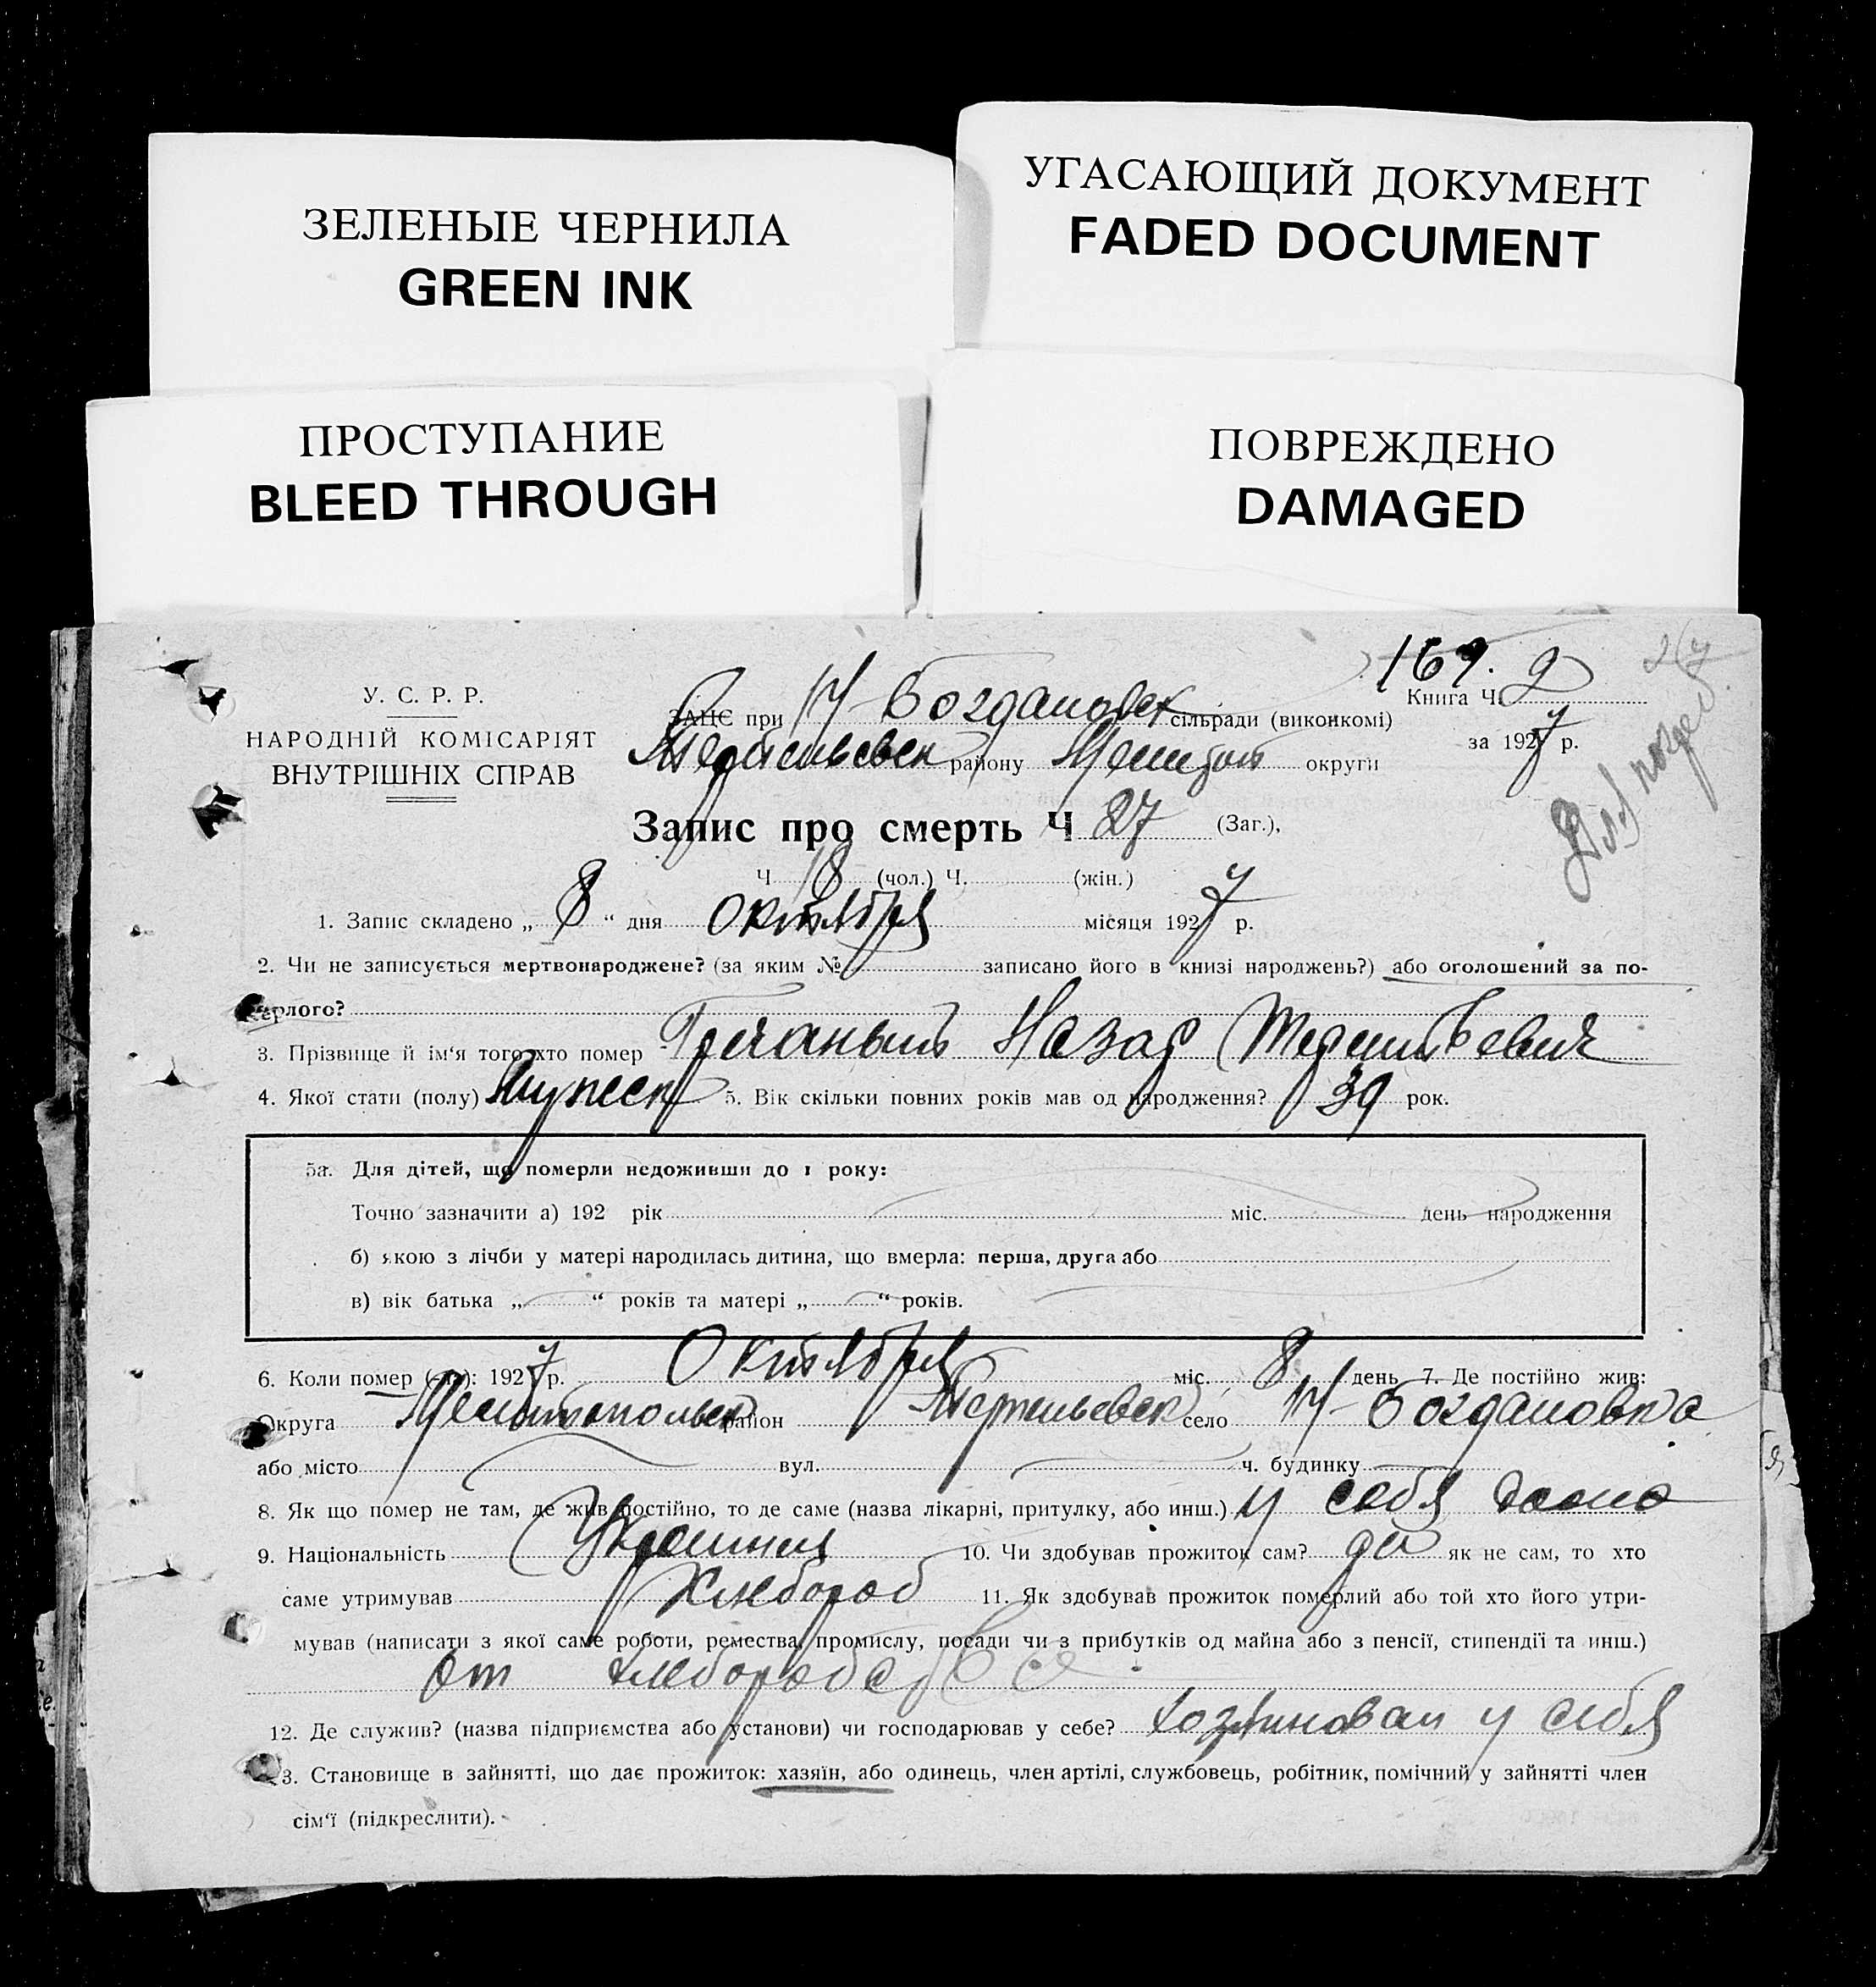 ЗЕЛЕНЫЕ ЧЕРНИЛА
GREEN INK
УГАСАЮЩИЙ ДОКУМЕНТ
FADED DOCUMENT
ПРОСТУПАНИЕ
BLEED THROUGH
ПОВРЕЖДЕНО
DAMAGED
169.
Книга Ч. 2
за 1927 р.
У. С. Р. Р.
НАРОДНІЙ КОМІСАРІЯТ
ВНУТРІШНІХ СПРАВ
ЗАЦС при Н-Богдановск сільради (виконкомі)
району Мелитоп округи
Запис про смерть Ч 27 (Заг.),
Ч 18 (чол.) Ч. (жін.)
1. Запис складено „ 8 “ дня Октября місяця 1927 р.
2. Чи не записується мертвонароджене? (за яким № записано його в книзі народжень?) або оголошений за по-
мерлого?
3. Прізвище й ім'я того хто помер Назар
4. Якої стати (полу) Мужеск 5. Вік скільки повних років мав од народження? 39 рок.
5а. Для дітей, що померли недоживши до 1 року:
Точно зазначити а) 192 рік міс. день народження
б) якою з лічби у матері народилась дитина, що вмерла: перша, друга або
в) вік батька „ “ років та матері „ “ років.
6. Коли помер : 1927 р. Октября міс. 8 день 7. Де постійно жив:
Округа Мелитопольск район село Н-Богдановка
або місто вул. ч. будинку
8. Як що помер не там, де жив постійно, то де саме (назва лікарні, притулку, або инш.) у себя дома
9. Національність 10. Чи здобував прожиток сам? да як не сам, то хто
саме утримував Хлебороб 11. Як здобував прожиток померлий або той хто його утри-
мував (написати з якої саме роботи, ремества, промислу, посади чи з прибутків од майна або з пенсії, стипендії та инш.)
от хлеборобства
12. Де служив? (назва підприємства або установи) чи господарював у себе? хозяиновал у себя
13. Становище в зайнятті, що дає прожиток: хазяїн, або одинець, член артілі, службовець, робітник, помічний у зайнятті член
сім'ї (підкреслити).